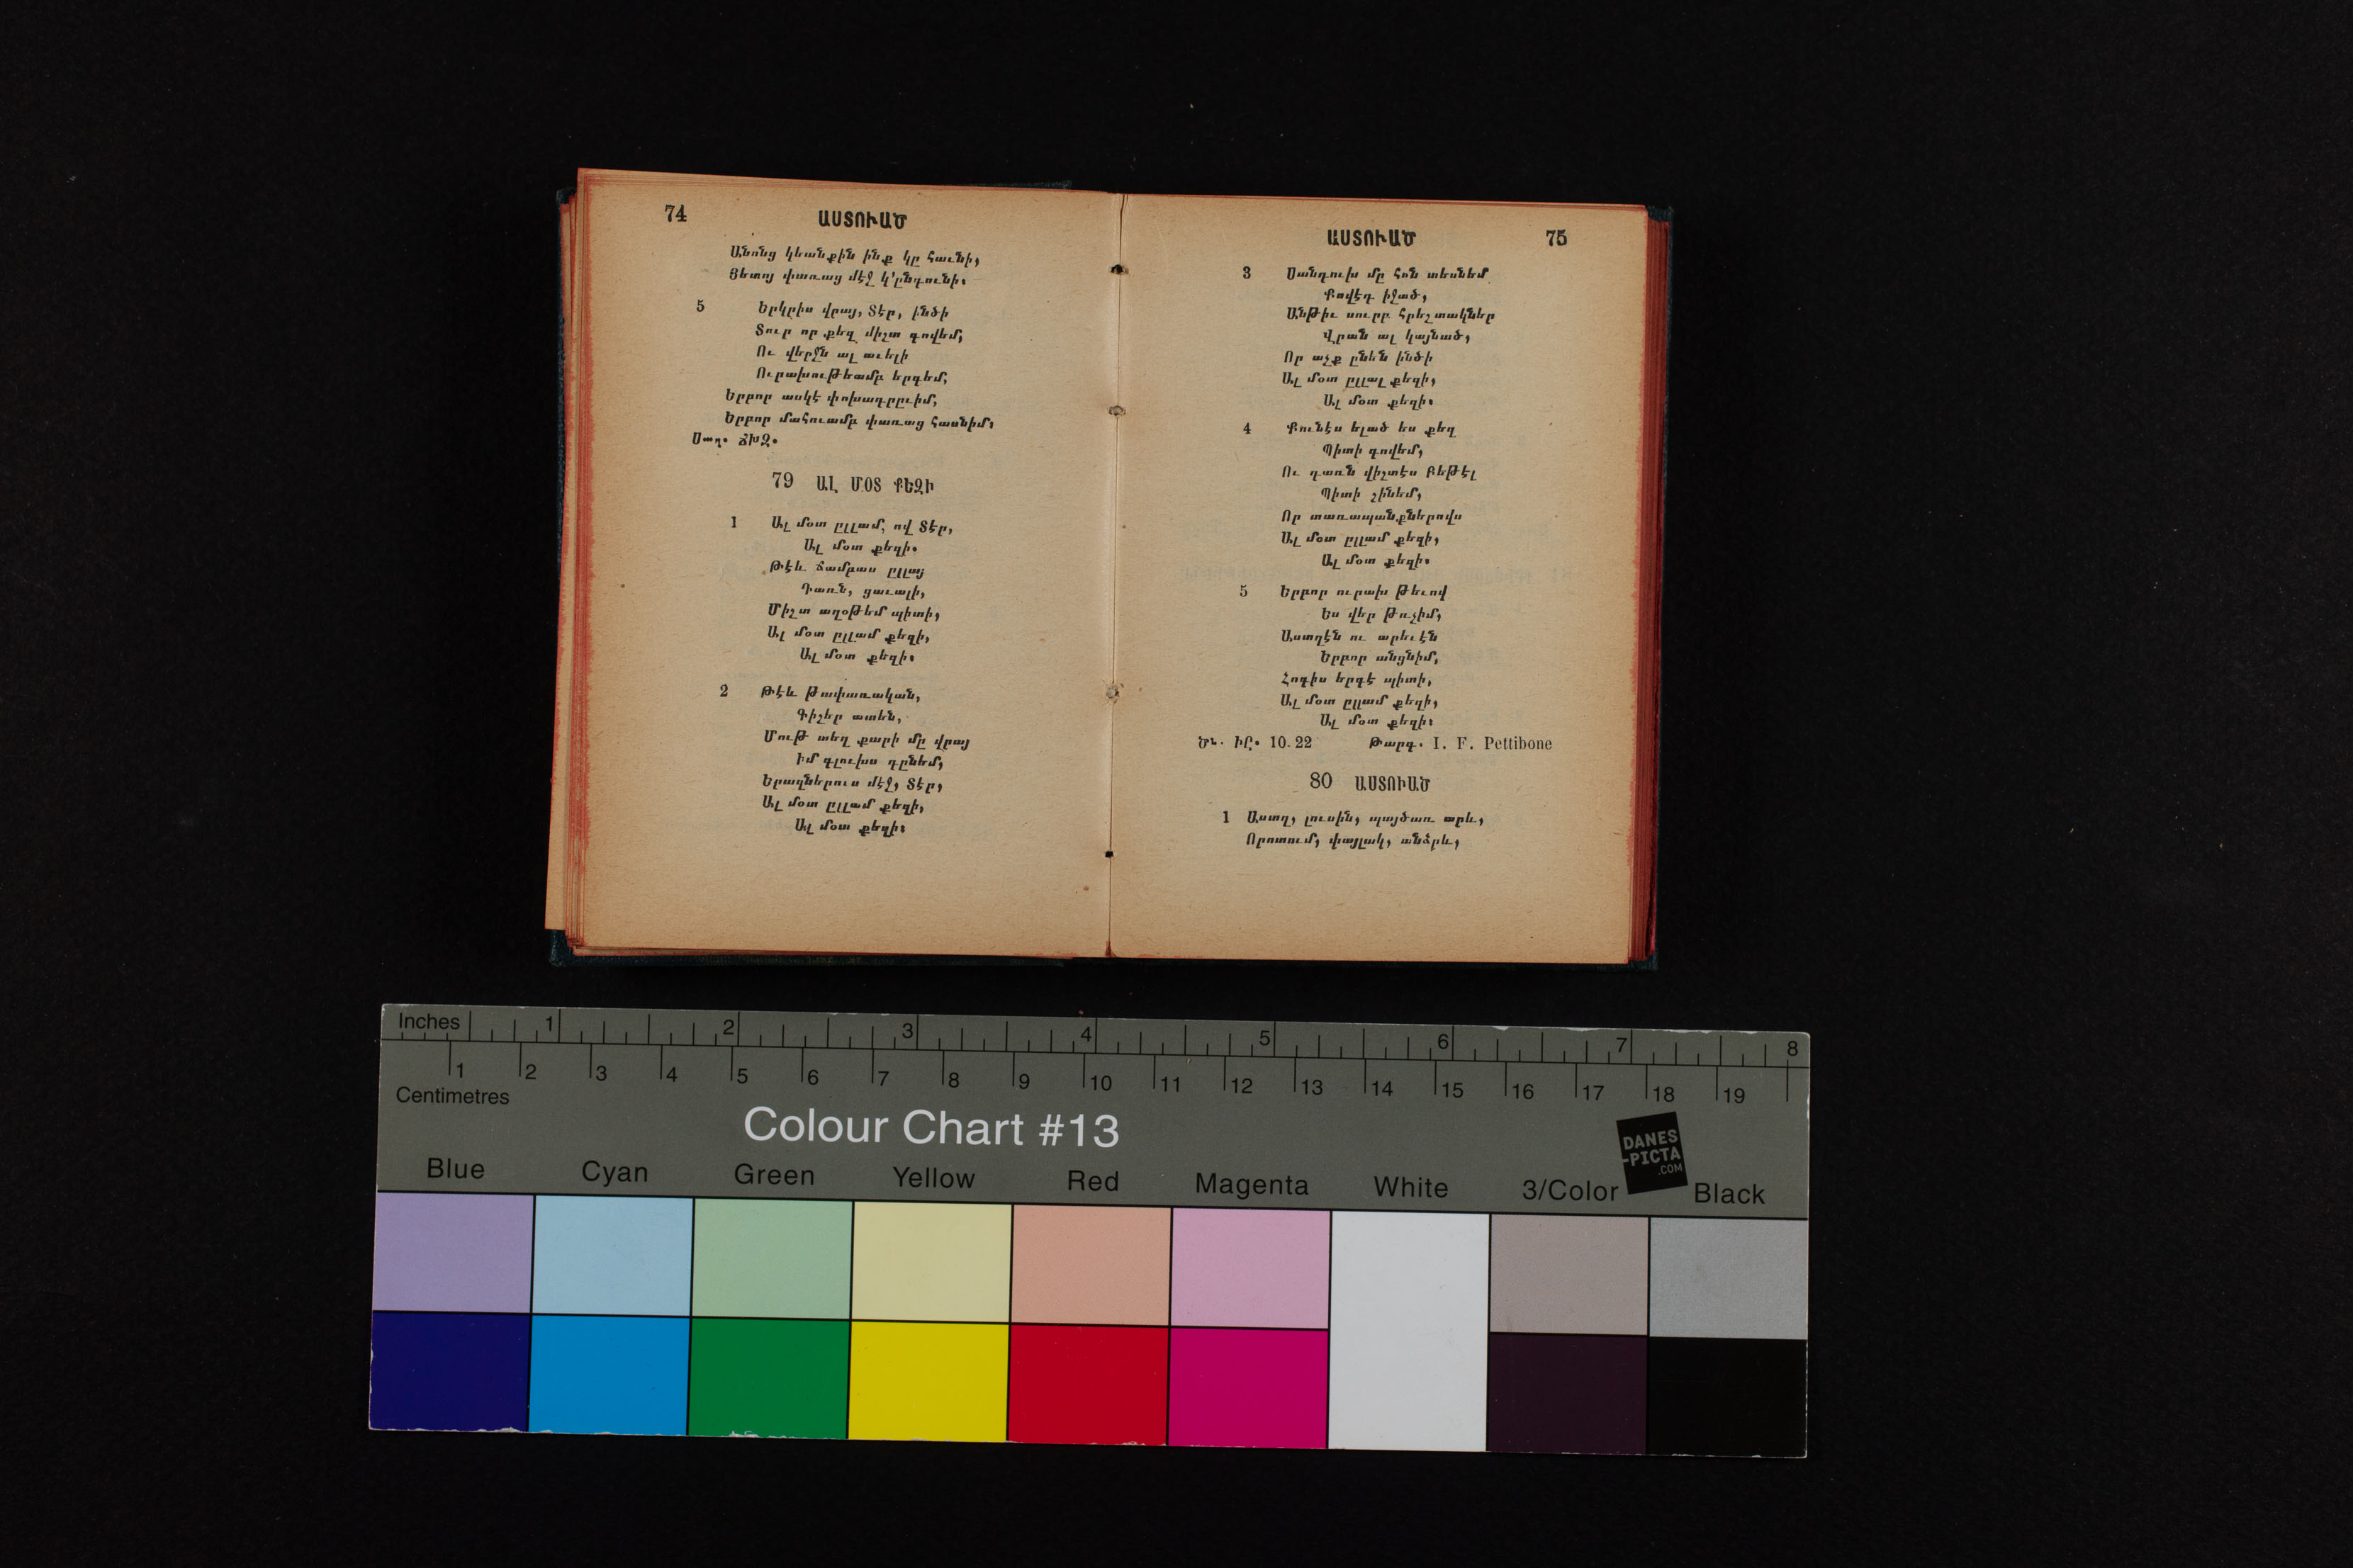 74 ԱՍՏՈՒԱԾ
Անոնց կեանքին ինք կը հաւնի,
Յետոյ փառաց մէջ կ'ընդունի։
5 Երկրիս վրայ, Տէր, ինծի
Տուր որ քեզ միշտ գովեմ,
Ու վերջն ալ աւելի
Ուրախութեամբ երգեմ,
Երբոր ասկէ փոխադրըւիմ,
Երբոր մահուամբ փառաց հասնիմ։
Սաղ. ՃԽԶ.
79 ԱԼ ՄՕՏ ՔԵԶԻ
1 Ալ մօտ ըլլամ, ով Տէր,
Ալ մօտ քեզի.
Թէև ճամբաս ըլլայ
Դառն, ցաւալի,
Միշտ աղօթեմ պիտի,
Ալ մօտ ըլլամ քեզի,
Ալ մօտ քեզի։
2 Թէև թափառական,
Գիշեր ատեն,
Մութ տեղ քարի մը վրայ
Իմ գլուխս դընեմ,
Երազներուս մէջ, Տէր,
Ալ մօտ ըլլամ քեզի,
Ալ մօտ քեզի։
ԱՍՏՈՒԱԾ 75
3 Սանդուխ մը հոն տեսնեմ
Քովէդ իջած,
Անթիւ սուրբ հրեշտակներ
Վրան ալ կայնած,
Որ աչք ընեն ինծի
Ալ մօտ ըլլալ քեզի,
Ալ մօտ քեզի։
4 Քունէս ելած ես քեզ
Պիտի գովեմ,
Ու դառն վիշտէս Բեթէլ
Պիտի շինեմ,
Որ տառապանքներովս
Ալ մօտ ըլլամ քեզի,
Ալ մօտ քեզի։
5 Երբոր ուրախ թեւով
Ես վեր թռչիմ,
Աստղէն ու արեւէն
Երբոր անցնիմ,
Հոգիս երգէ պիտի,
Ալ մօտ ըլլամ քեզի,
Ալ մօտ քեզի։
Ծն. ԻԸ. 10.22 Թարգ. I. F. Pettibone
80 ԱՍՏՈՒԱԾ
1 Աստղ, լուսին, պայծառ արև,
Որոտում, փայլակ, անձրև,
Inches 1 2 3 4 5 6 7 8
1 2 3 4 5 6 7 8 9 10 11 12 13 14 15 16 17 18 19
Centimetres
Colour Chart #13
DANES
-PICTA
.COM
Blue Cyan Green Yellow Red Magenta White 3/Color Black